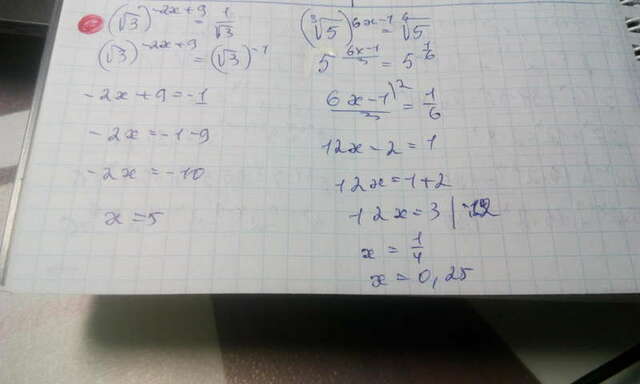 (√3)^-2x+9 = 1/√3
(√3)^-2x+9 = (√3)^-1
-2x+9=-1
-2x=-1-9
-2x=-10
x=5
(∛5)^6x-1 = ⁶√5
5^(6x-1)/3 = 5^1/6
(6x-1)/3 )² = 1/6
12x-2=1
12x=1+2
12x=3 | :12
x = 1/4
x = 0,25